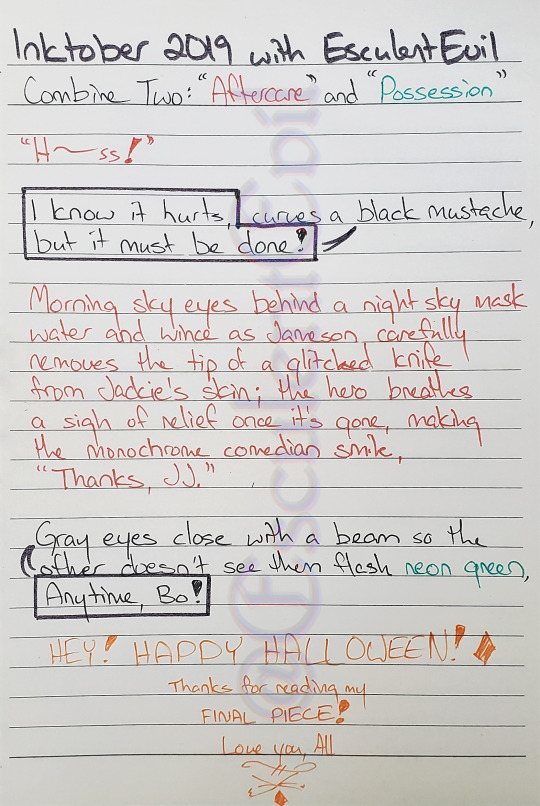 Inktober 2019 with EsculentEvil
Combine Two: "Aftercare" and "Possession"
"H~ss!"
I know it hurts, curves a black mustache,
but it must be done!
Morning sky eyes behind a night sky mask
water and wince as Jameson carefully
removes the tip of a glitched knife
from Jackie's skin; the hero breathes
a sigh of relief once it's gone, making
the monochrome comedian smile,
"Thanks, JJ."
Gray eyes close with a beam so the
other doesn't see them flash neon green,
Anytime, Bo!
HEY! HAPPY HALLOWEEN!
Thanks for reading my
FINAL PIECE!
Love you, All
@EsculentEvil